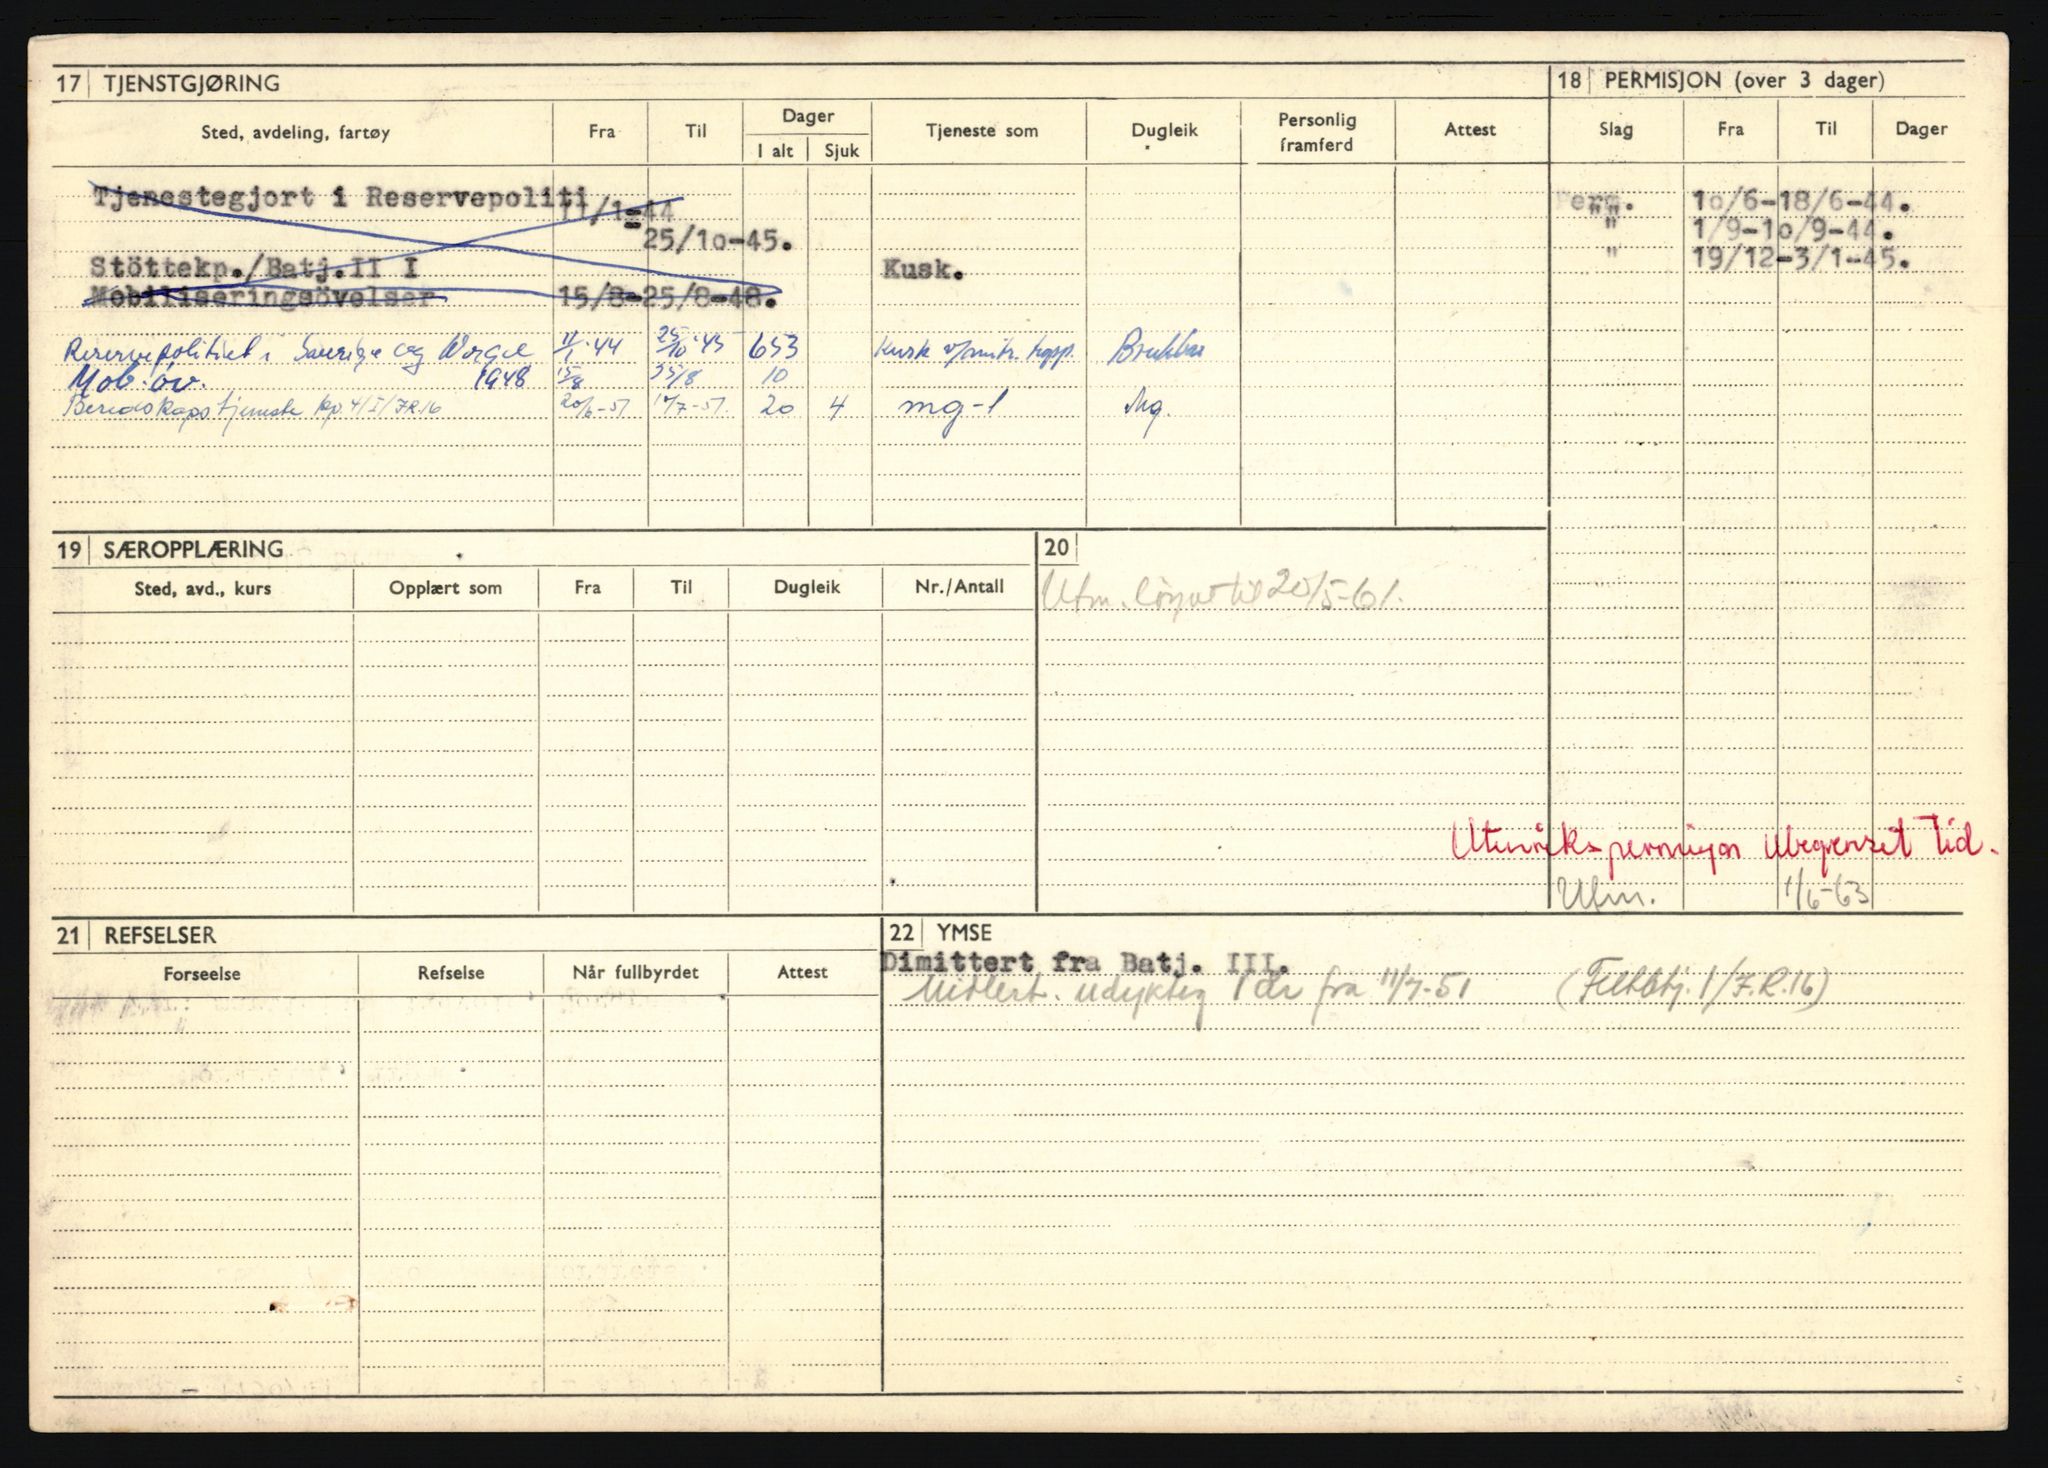 17 TJENSTGJØRING
18 PERMISJON (over 3 dager)
Sted, avdeling, fartøy Fra Til Dager Tjeneste som Dugleik Personlig framferd Attest
I alt Sjuk
Slag Fra Til Dager
Tjenestegjort i Reservepoliti
11/1-44
25/10-45.
Stöttekp./Batj.II I Kusk.
Mobiliseringsövelser 15/8-25/8-48.
Perm. 10/6-18/6-44.
" 1/9-10/9-44.
" 19/12-3/1-45.
Reservepolitiet i Sverige og Norge 11/1-44 25/10-45 653 Kusk v/mitr. tropp. Brukbar
Mob. öv. 1948 15/8 25/8 10
Beredskapstjeneste kp. 4/I/I.R.16 20/6-51 -51 20 4 mg-1 Mg.
19 SÆROPPLÆRING
20
Sted, avd., kurs Opplært som Fra Til Dugleik Nr./Antall
Utm. til 20/5-61.
Utenrikspermisjon Ubegrenset tid.
Utm. 1/6-63
21 REFSELSER
22 YMSE
Forseelse Refselse Når fullbyrdet Attest
Dimittert fra Batj. III.
Midlert. udyktig 1 år fra 11/7-51 (Feltbtj. 1/I.R.16)